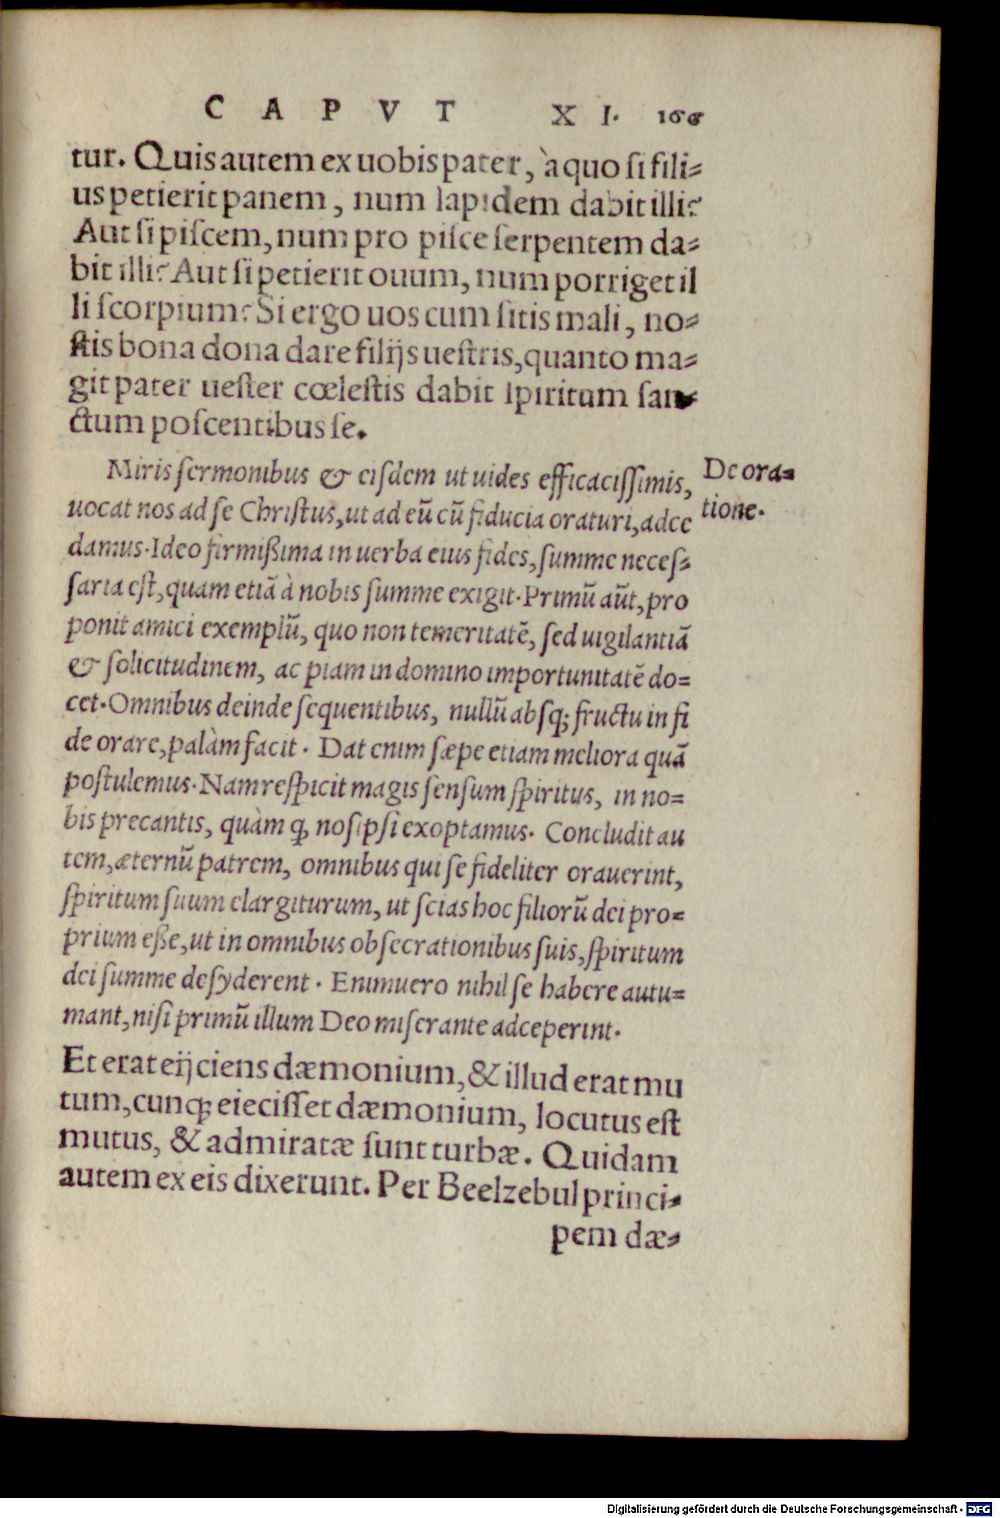 CAPVT XI. 166
tur. Quis autem ex uobis pater, à quo si fili-
us petierit panem, num lapidem dabit illi?
Aut si piscem, num pro pisce serpentem da-
bit illi? Aut si petierit ouum, num porriget il
li scorpium? Si ergo uos cum sitis mali, no-
stis bona dona dare filijs uestris, quanto ma-
git pater uester cœlestis dabit spiritum san-
ctum poscentibus se.
Miris sermonibus & eisdem ut uides efficacissimis,
uocat nos ad se Christus, ut ad eũ cũ fiducia oraturi, adce
damus. Ideo firmißima in uerba eius fides, summe neces-
saria est, quam etiã à nobis summe exigit. Primũ aũt, pro
ponit amici exemplũ, quo non temeritatẽ, sed uigilantiã
& solicitudinem, ac piam in domino importunitatẽ do-
cet. Omnibus deinde sequentibus, nullũ absq; fructu in fi
de orare, palàm facit. Dat enim sæpe etiam meliora quã
postulemus. Nam respicit magis sensum spiritus, in no-
bis precantis, quàm q, nos ipsi exoptamus. Concludit au
tem, æternũ patrem, omnibus qui se fideliter orauerint,
spiritum suum elargiturum, ut scias hoc filiorũ dei pro-
prium eße, ut in omnibus obsecrationibus suis, spiritum
dei summe desyderent. Enimuero nihil se habere autu-
mant, nisi primũ illum Deo miserante adceperint.
De ora-
tione.
Et erat eijciens dæmonium, & illud erat mu
tum, cunq; eiecisset dæmonium, locutus est
mutus, & admiratæ sunt turbæ. Quidam
autem ex eis dixerunt. Per Beelzebul princi-
pem dæ-
Digitalisierung gefördert durch die Deutsche Forschungsgemeinschaft - DFG